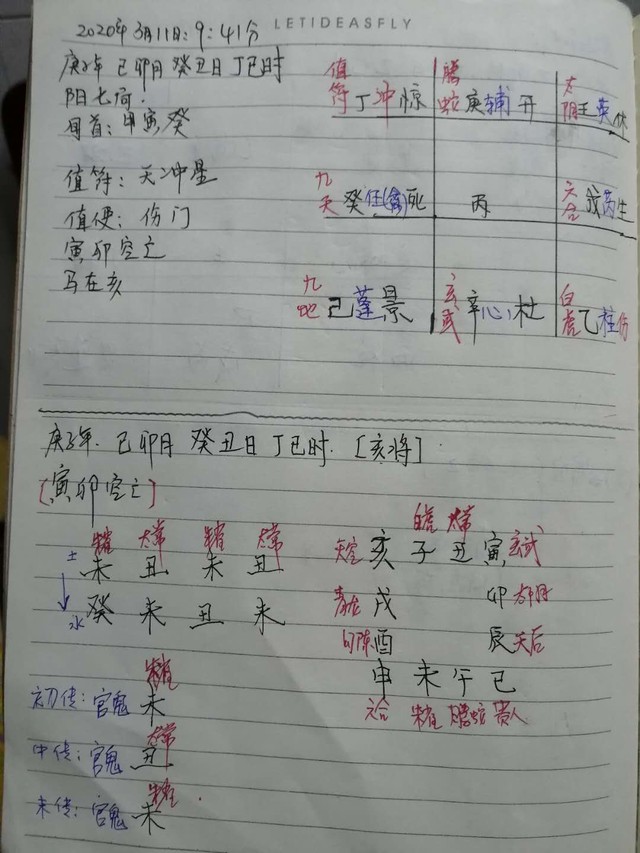 LETIDEASFLY
2020年3月11日:9:41分
庚子年 己卯月 癸丑日 丁巳时
阳七局.
旬首:甲寅癸
值符:天冲星
值使:伤门
寅卯空亡
马在亥
值符 丁冲惊 腾蛇 庚辅开 太阴 壬英休
九天 癸任(禽)死 丙 六合 戊芮生
九地 己蓬景 玄武 辛心杜 白虎 乙柱伤
庚子年. 己卯月 癸丑日 丁巳时. [亥将]
[寅卯空亡]
朱雀 太常 朱雀 太常
土 未 丑 未 丑
水 癸 未 丑 未
白虎 太常
天空 亥 子 丑 寅 玄武
青龙 戌 卯 太阴
勾陈 酉 辰 天后
申 未 午 巳
六合 朱雀 腾蛇 贵人
朱雀
初传:官鬼 未
太常
中传:官鬼 丑
朱雀
末传:官鬼 未